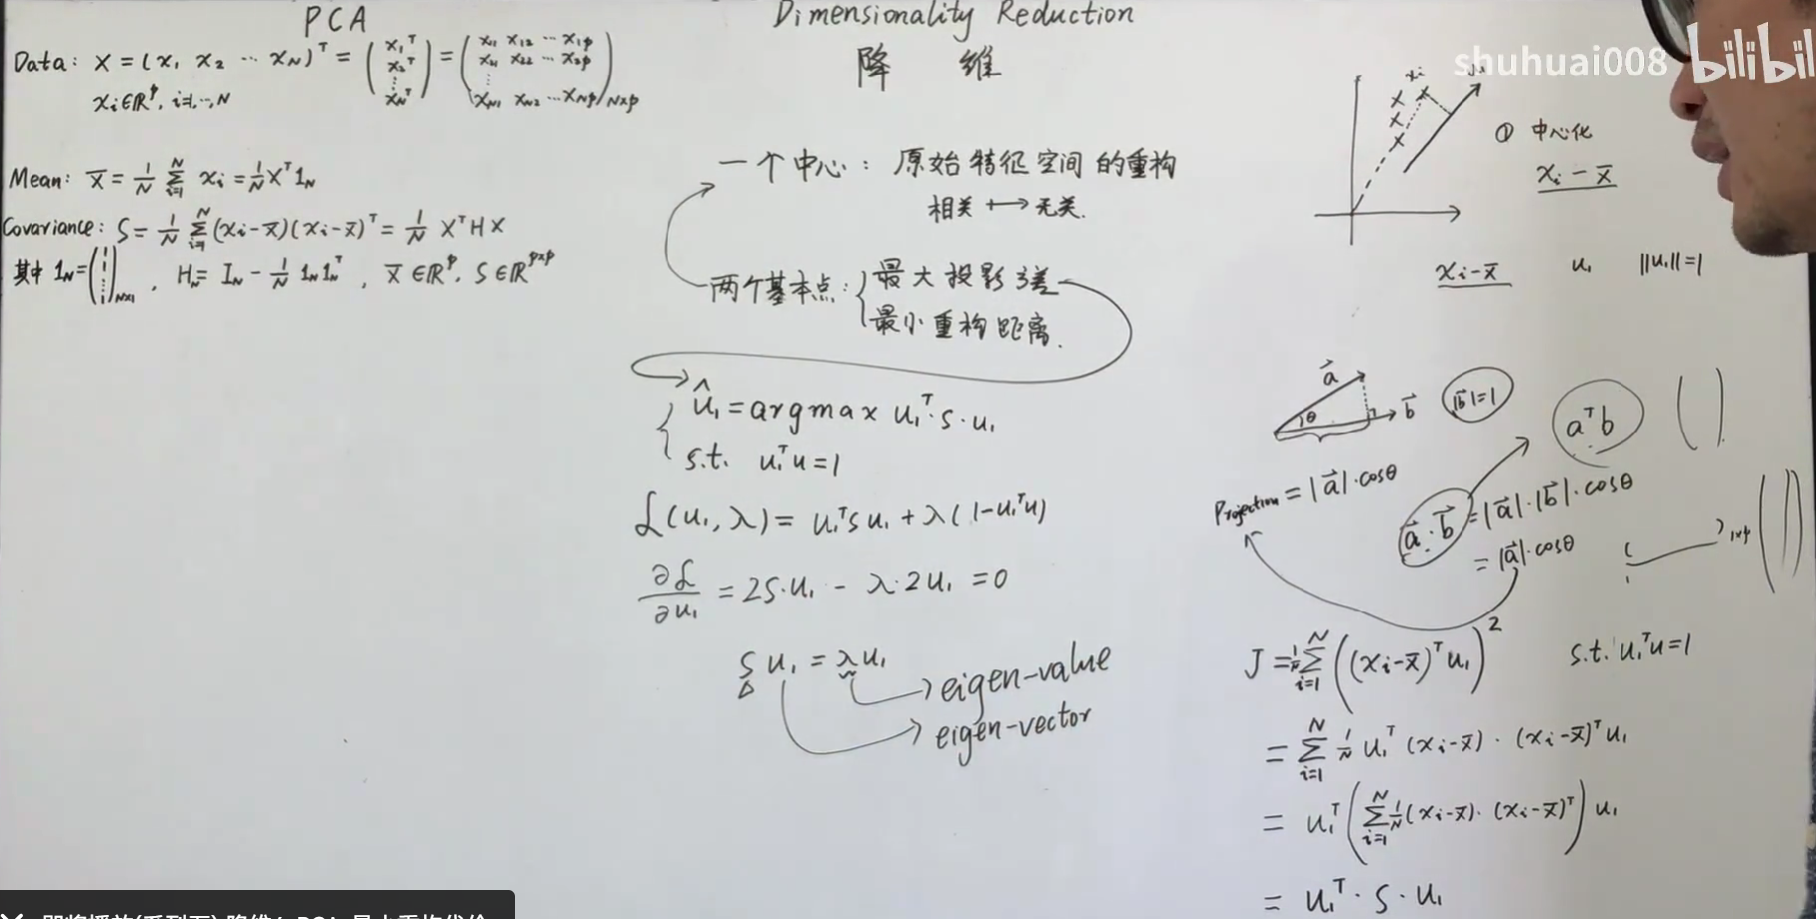 PCA
Data: X = (x₁ x₂ ⋯ x_N)ᵀ = (x₁ᵀ x₂ᵀ ⋮ x_Nᵀ) = (x₁₁ x₁₂ ⋯ x₁p x₂₁ x₂₂ ⋯ x₂p ⋮ x_N1 x_N2 ⋯ x_Np)_N×p
xᵢ∈ℝᵖ, i=1,⋯,N
Mean: x̄ = 1/N ∑_{i=1}^N xᵢ = 1/N Xᵀ 1_N
Covariance: S = 1/N ∑_{i=1}^N (xᵢ-x̄)(xᵢ-x̄)ᵀ = 1/N XᵀHX
其中 1_N = (1 ⋮ 1)_N×1, H_N = I_N - 1/N 1_N 1_Nᵀ, x̄∈ℝᵖ, S∈ℝ^{p×p}
Dimensionality Reduction
降 维
一个中心: 原始特征空间的重构
相关 ↔ 无关.
两个基本点: { 最大投影方差
最小重构距离.
{ û₁ = argmax u₁ᵀ·S·u₁
s.t. u₁ᵀu=1
ℒ(u₁, λ) = u₁ᵀSu₁ + λ(1-u₁ᵀu)
∂ℒ/∂u₁ = 2S·u₁ - λ·2u₁ = 0
Su₁ = λu₁
eigen-value
eigen-vector
shuhuai008 bilibili
xᵢ
u₁
① 中心化
xᵢ - x̄
xᵢ-x̄ u₁ ‖u₁‖=1
a⃗ θ b⃗ |b⃗|=1 aᵀb
Projection = |a⃗|·cosθ
a⃗·b⃗ = |a⃗|·|b⃗|·cosθ
= |a⃗|·cosθ
( )_1×p
J = 1/N ∑_{i=1}^N ((xᵢ-x̄)ᵀu₁)² s.t. u₁ᵀu=1
= ∑_{i=1}^N 1/N u₁ᵀ(xᵢ-x̄)·(xᵢ-x̄)ᵀu₁
= u₁ᵀ(∑_{i=1}^N 1/N (xᵢ-x̄)·(xᵢ-x̄)ᵀ)u₁
= u₁ᵀ·S·u₁